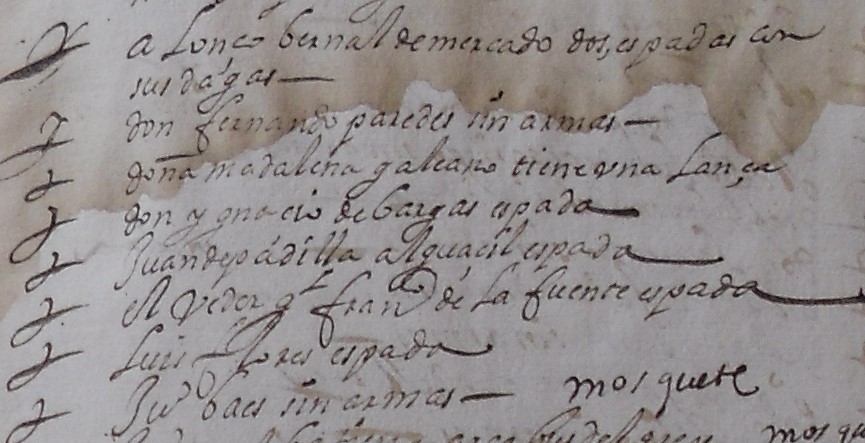 y alonço bernal de mercado dos espadas con
sus dagas —
y don fernando paredes sin armas —
y doña madalena galeano tiene una lança
y don ygnacio de bargas espada
y Juan de padilla alguacil espada
y el Vedor gl franco de la fuente espada
y Luis flores espada
y Juo baes sin armas — mosquete